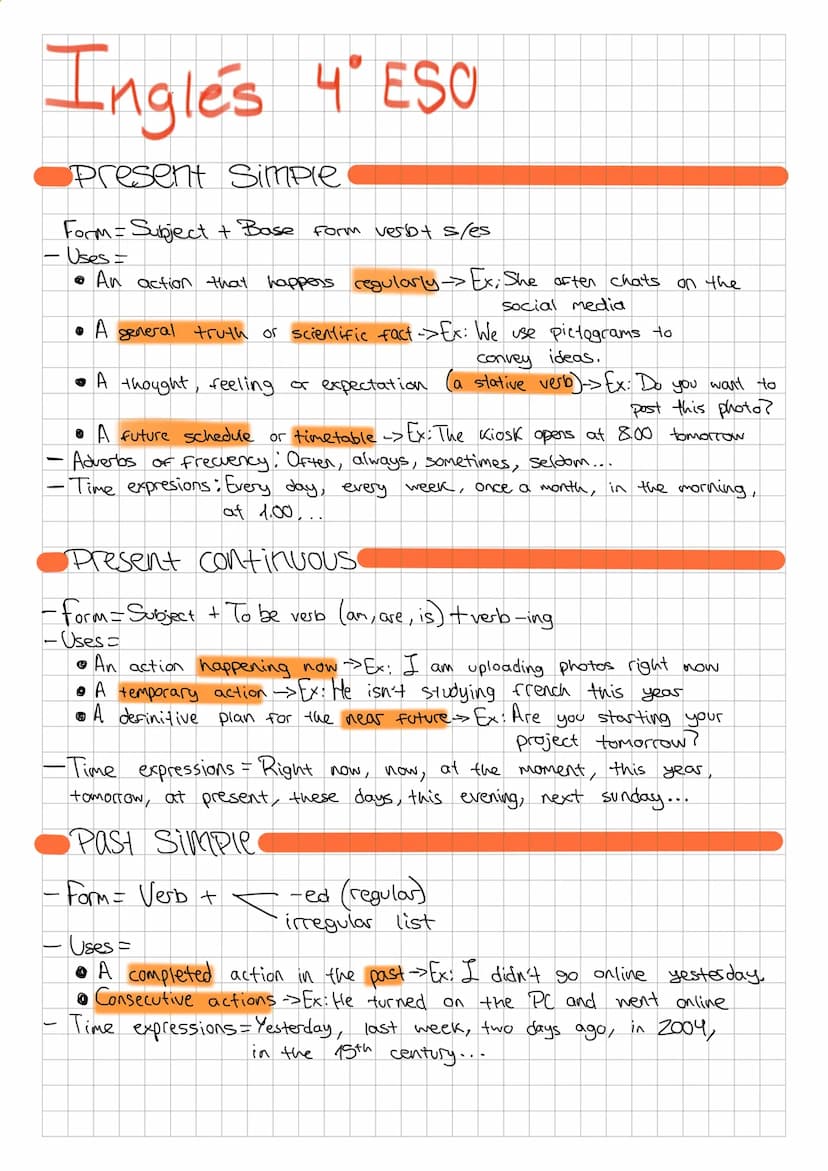 Inglés 4º ESO
Present Simple
Form = Subject + Base form verb + s/es
- Uses =
• An action that happens regularly -> Ex; She often chats on the
social media
• A general truth or scientific fact -> Ex: We use pictograms to
convey ideas.
• A thought, feeling or expectation (a stative verb) -> Ex: Do you want to
post this photo?
• A future schedule or timetable -> Ex: The kiosk opens at 8.00 tomorrow
- Adverbs of frecuency: Often, always, sometimes, seldom...
- Time expresions: Every day, every week, once a month, in the morning,
at 1.00,...
Present continuous
- Form = Subject + To be verb (am, are, is) + verb -ing
- Uses =
• An action happening now -> Ex: I am uploading photos right now
• A temporary action -> Ex: He isn't studying french this year
• A definitive plan for the near future -> Ex: Are you starting your
project tomorrow?
- Time expressions = Right now, now, at the moment, this year,
tomorrow, at present, these days, this evening, next sunday...
Past simple
- Form = Verb + -ed (regular)
irregular list
- Uses =
• A completed action in the past -> Ex: I didn't go online yesterday.
• Consecutive actions -> Ex: He turned on the PC and went online
- Time expressions = Yesterday, last week, two days ago, in 2004,
in the 15th century...